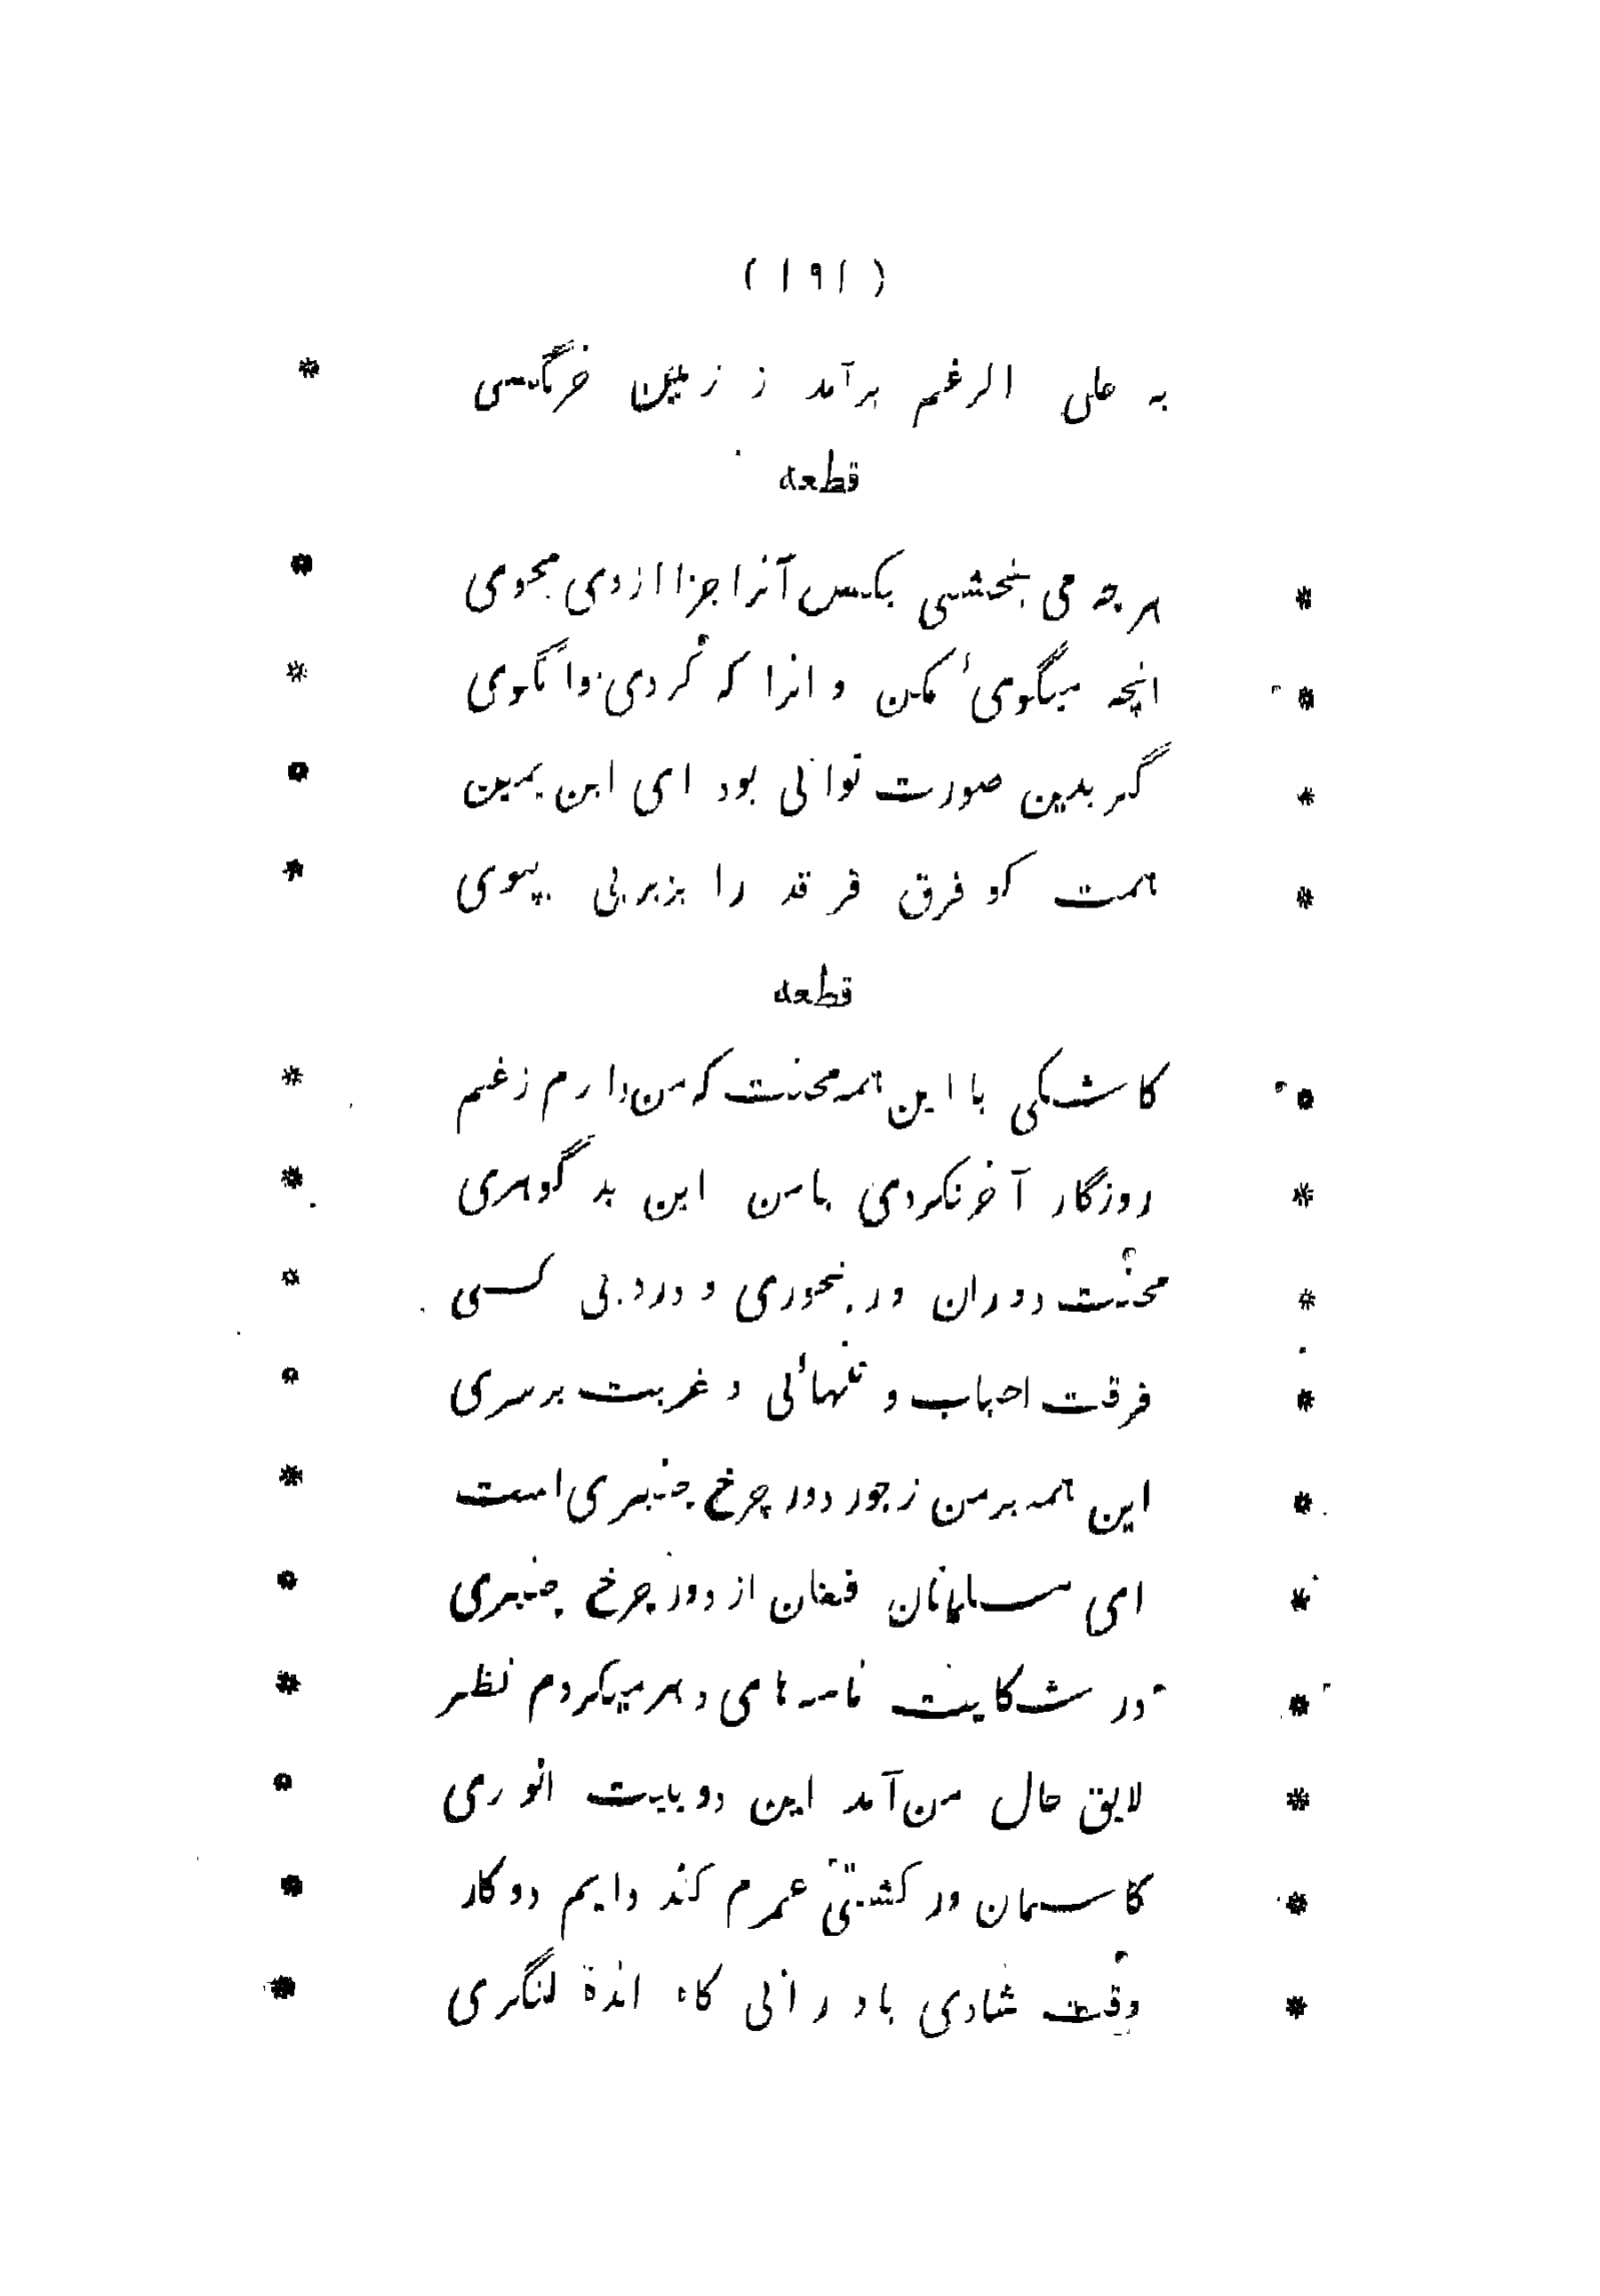 ( ۱۹۱ )
به علی الرغم برآمد ز زمین خرمگسی *
قطعه
* هرچه می بخشی بکس آنرا جزا ازوی مجوی *
* انچه میگوئی مکن و انرا که کردی وا مگوی *
* گر بدین صورت توانی بود ای ابن یمین *
* همت کو فرق فرقد را بزیر پی بپوی *
قطعه
* کاشکی با این همه محنت که من دارم ز غم *
* روزگار آخر نکردی با من این بد گوهری *
* محنت دوران و رنجوری و درد بی کسی *
* فرقت احباب و تنهائی و غربت برسری *
* این همه بر من ز جور دور چرخ چنبری است *
* ای مسلمانان فغان از دور چرخ چنبری *
* در شکایت نامه های دهر میکردم نظر *
* لایق حال من آمد این دو بیت انوری *
* کاسمان در کشتی عمرم کند دایم دو کار *
* وقت شادی باد رانی گاه اندۀ لنگری *